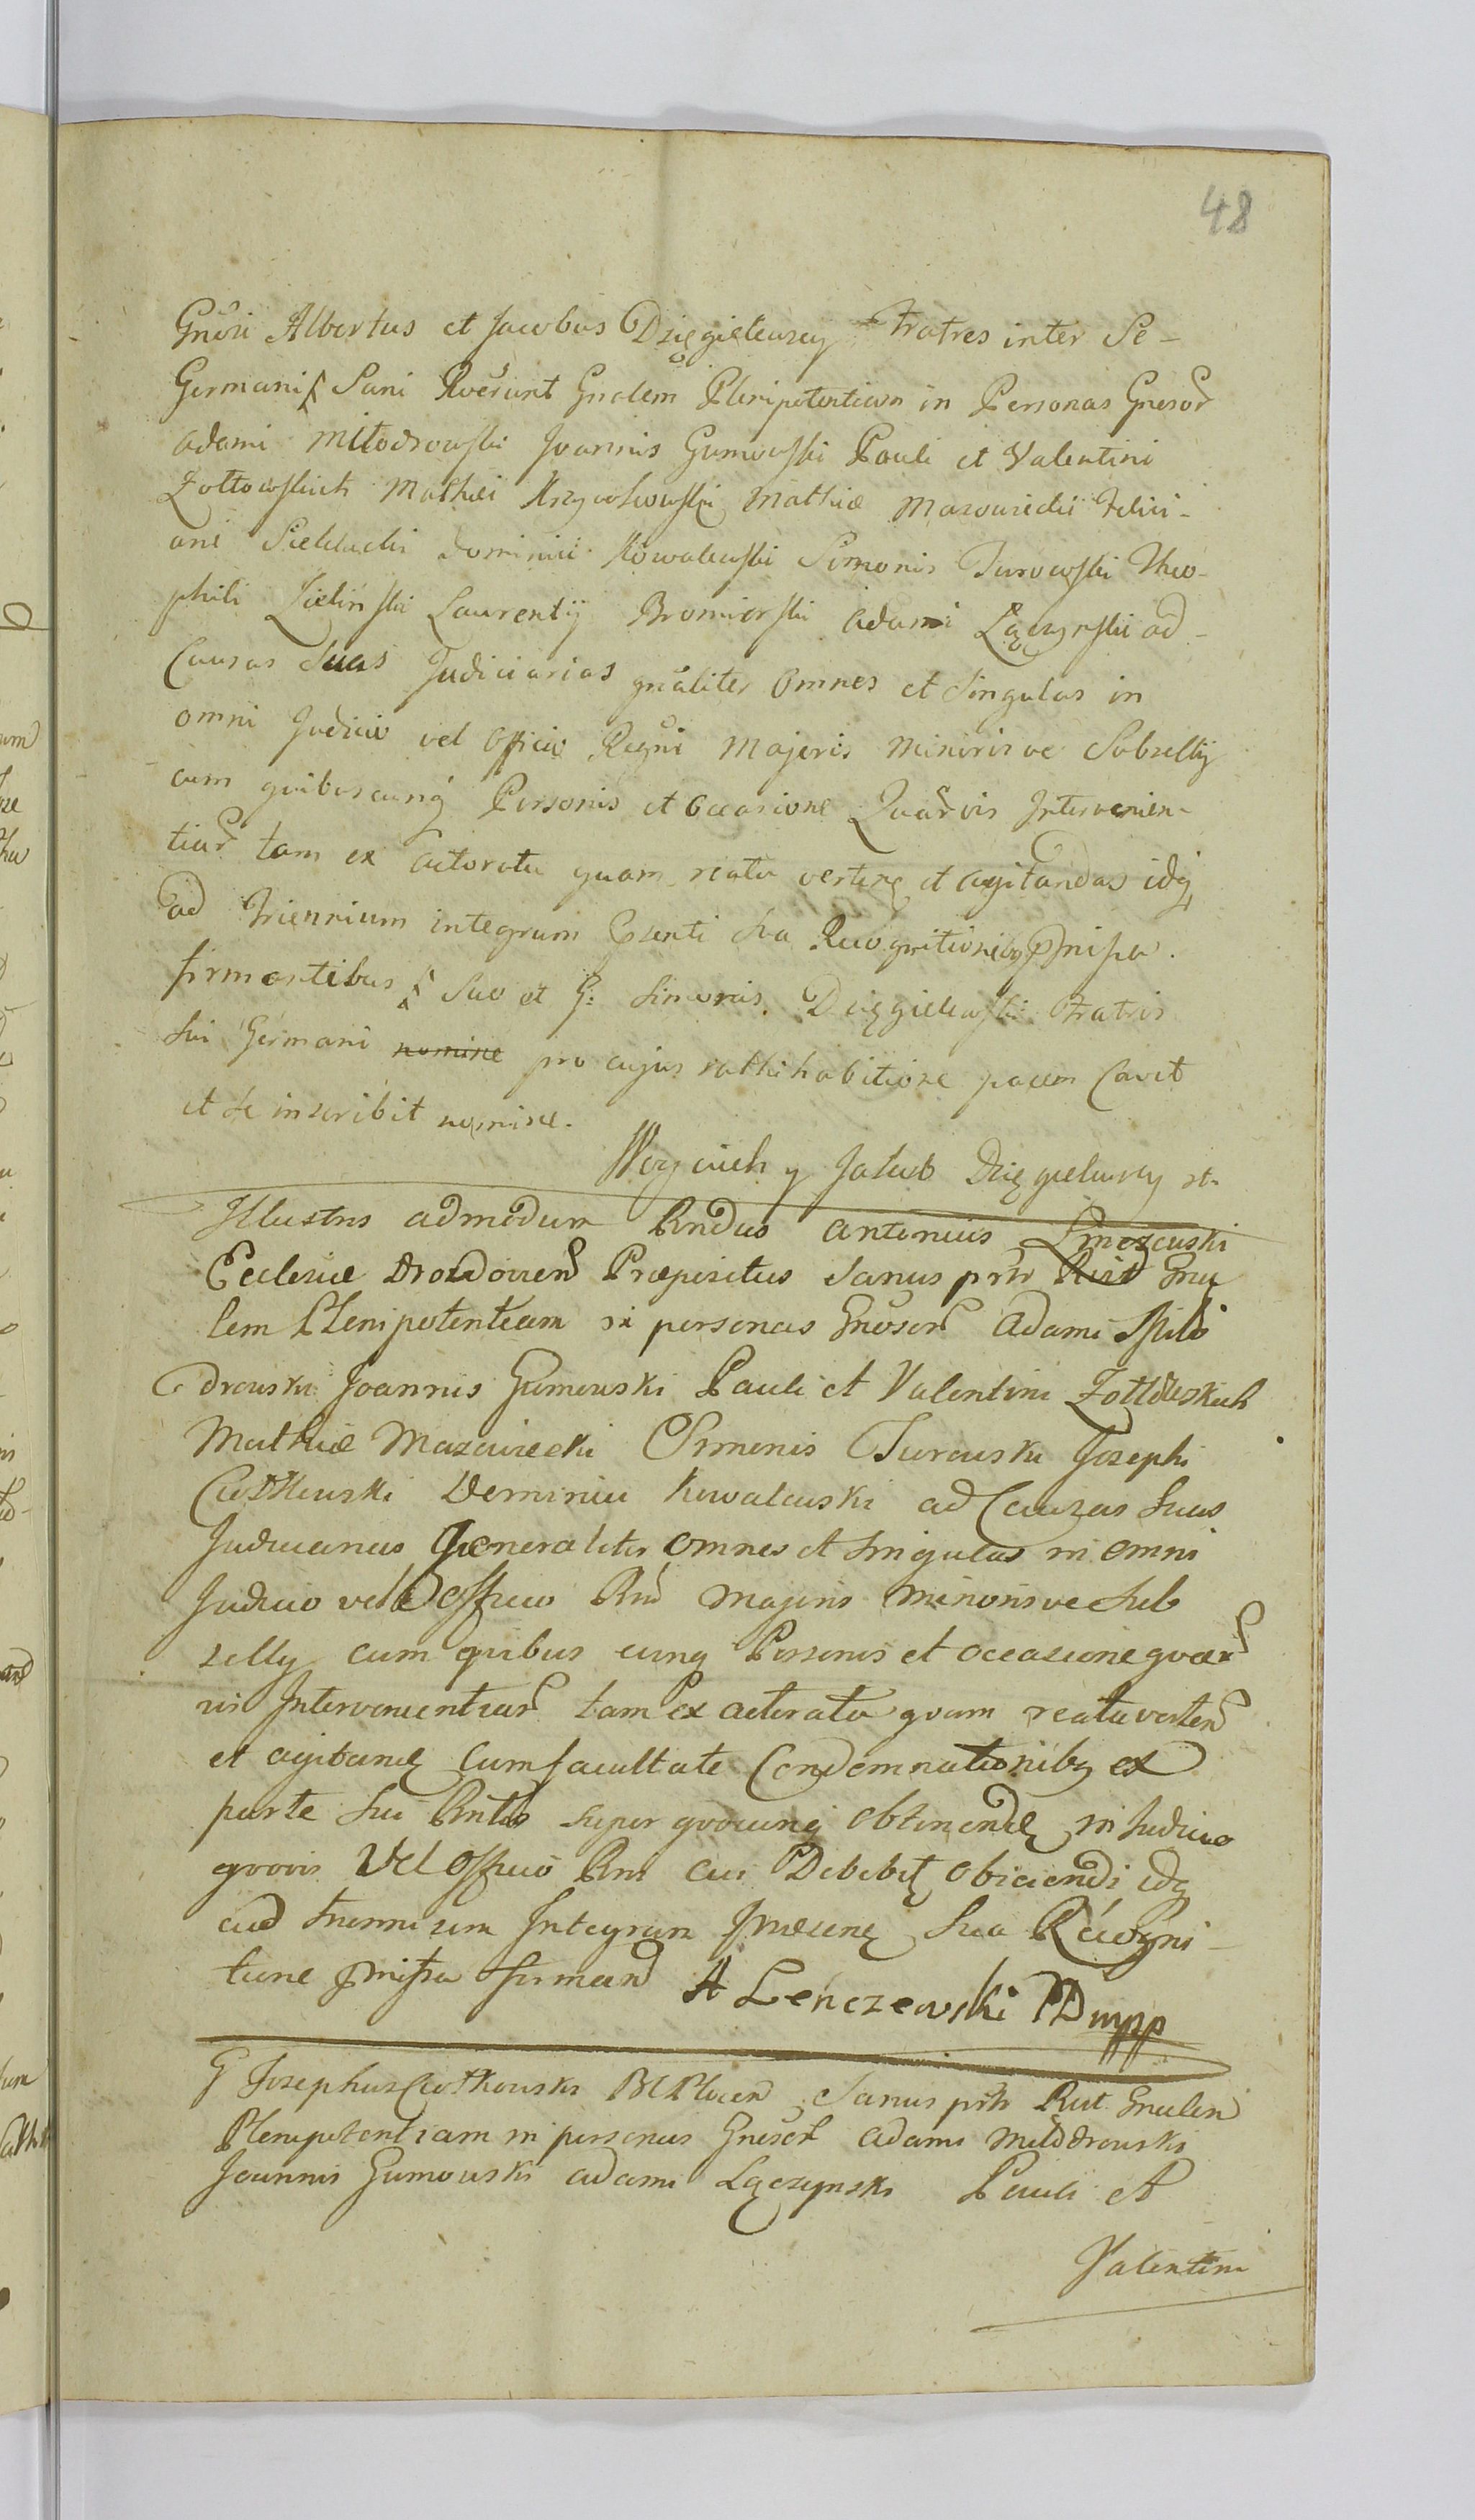 48
Gnosi Albertus et Jacobus Dzięgielewscy Fratres inter Se-
Germani Sani Rverunt Gnalem Plenipotentiam in Personas Gnesor
Adami Miłodrowski Joannis Gumowski Pauli et Valentini
Żołtowskich Mathei Krzywkowski Mathiæ Mazowiecki Felici-
ani Sieklucki Dominici Kowalewski Simonis Turowski Theo-
phili Zieliński Laurentij Bromirski Adami Łączynski ad-
Causas Suas Judiciarias gnaliter Omnes et Singulas in
omni Judicio vel Officio Regni Majoris Minorisve Subselly
cum quibuscunq Personis et Occasione Quarvis Intervenien-
tiar tam ex actoratu quam reatu verten et agitandas idq
ad Triennium integrum Psenti Sua Recognitionibq pmissa.
firmantibus Suo et G: Simonis Dzięgielewski Fratris
Sui Germani nomine pro cujus rathihabitione pacem Cavit
et Se inscribit nomine.
Woyciech y Jakub Dzięgielewscy
Illustris admodum Rndus Antonius
Ecclesiæ Præpositus Sanus prtr Rut Gna
lem Plenipotentiam in personas Gnosor Adami Miło
drowski Joannis Gumowski Pauli et Valentini Żołtowskich
Mathiæ Mazowiecki Simonis Turowski Josephi
Ciołkowski Dominici Kowalewski ad Causas Suas
Judicianas Generaliter Omnes et Singulas in omni
Judicio vel Officio Rni Majoris Minorisve Sub
selly cum quibus cunq Personis et occasione qvar
vis Intervenientiar tam ex actoratu qvam reatu verten
et agitand Cum facultate Condemnationibq ex
parte Sui Rntis super qvocunq obtinend in Judicio
qvovis Vel Officio Rni cui Debebit obiciendi idq
ad Triennium Integrum Sua Recogni-
tione pmissa firmand A Lenczewski PD mpp
G Josephus Ciołkowski Sanus prtr Rut Gnalem
Plenipotentiam in personas Gnesor Adami Miłodrowski
Joannis Gumowski Adami Łączynski Pauli et
Valentini